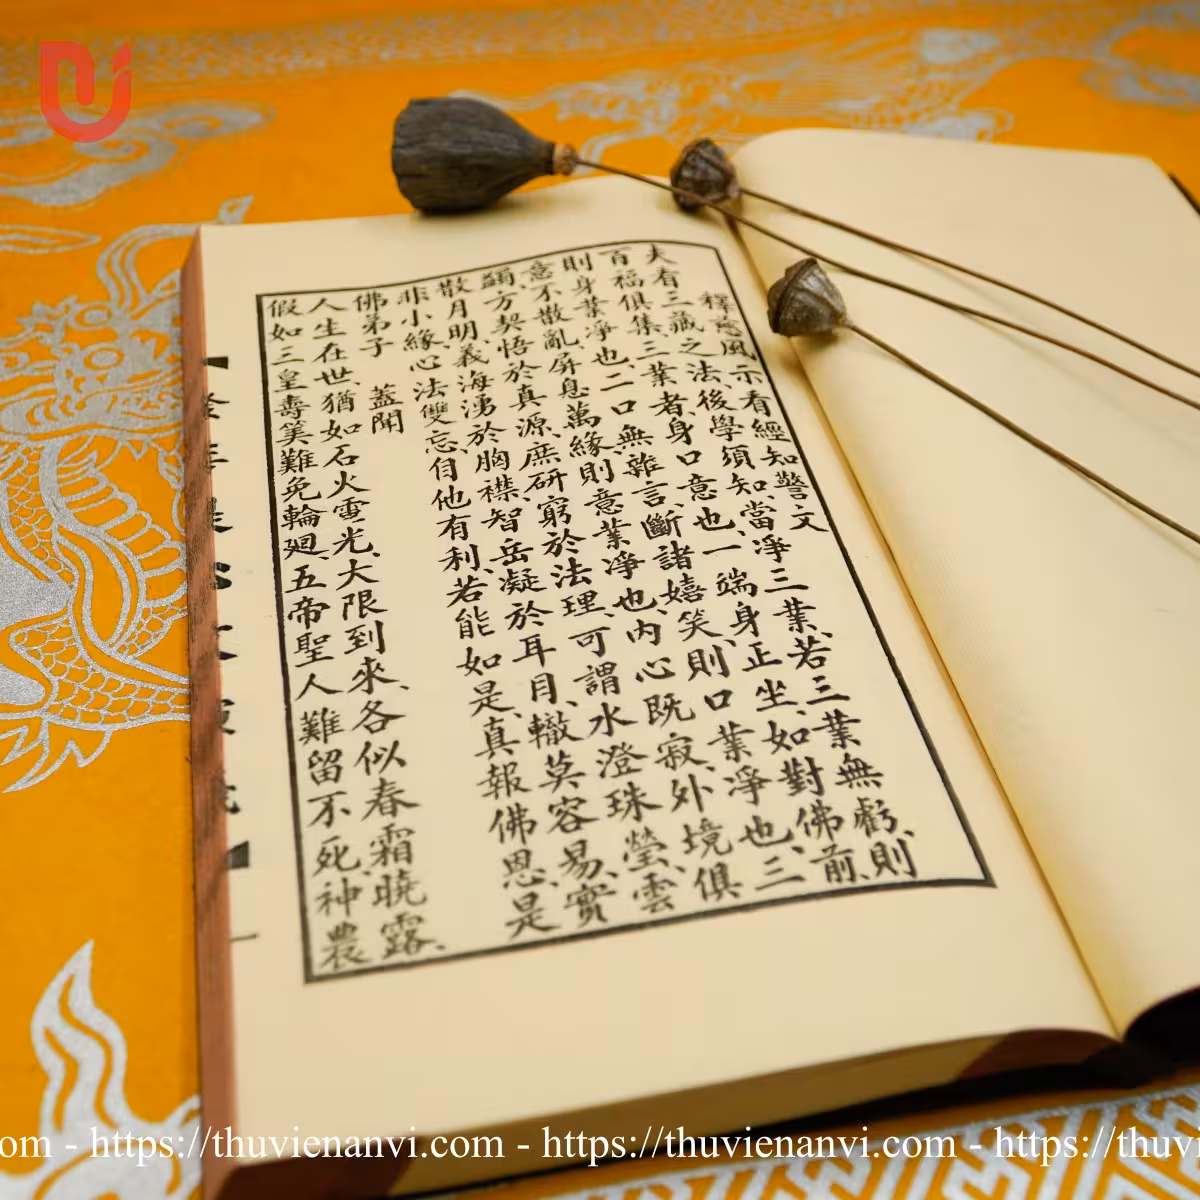 釋慈風示看經知警文
夫有三藏之法、後學須知、當淨三業、若三業無虧、則
百福俱集、三業者、身口意也、一端身正坐、如對佛前、
則身業淨也、二口無雜言、斷諸嬉笑、則口業淨也、三
意不散亂、屏息萬緣、則意業淨也、內心既寂、外境俱
蠲、方契悟於真源、庶研窮於法理、可謂水澄珠瑩、雲
散月明、義海湧於胸襟、智岳凝於耳目、轍莫容易、實
非小緣、心法雙忘、自他有利、若能如是、真報佛恩、是
佛弟子 蓋聞
人生在世、猶如石火電光、大限到來、各似春霜曉露、
假如三皇壽筭難免輪迴、五帝聖人難留不死、神農
https://thuvienanvi.com - https://thuvienanvi.com - https://thuvi